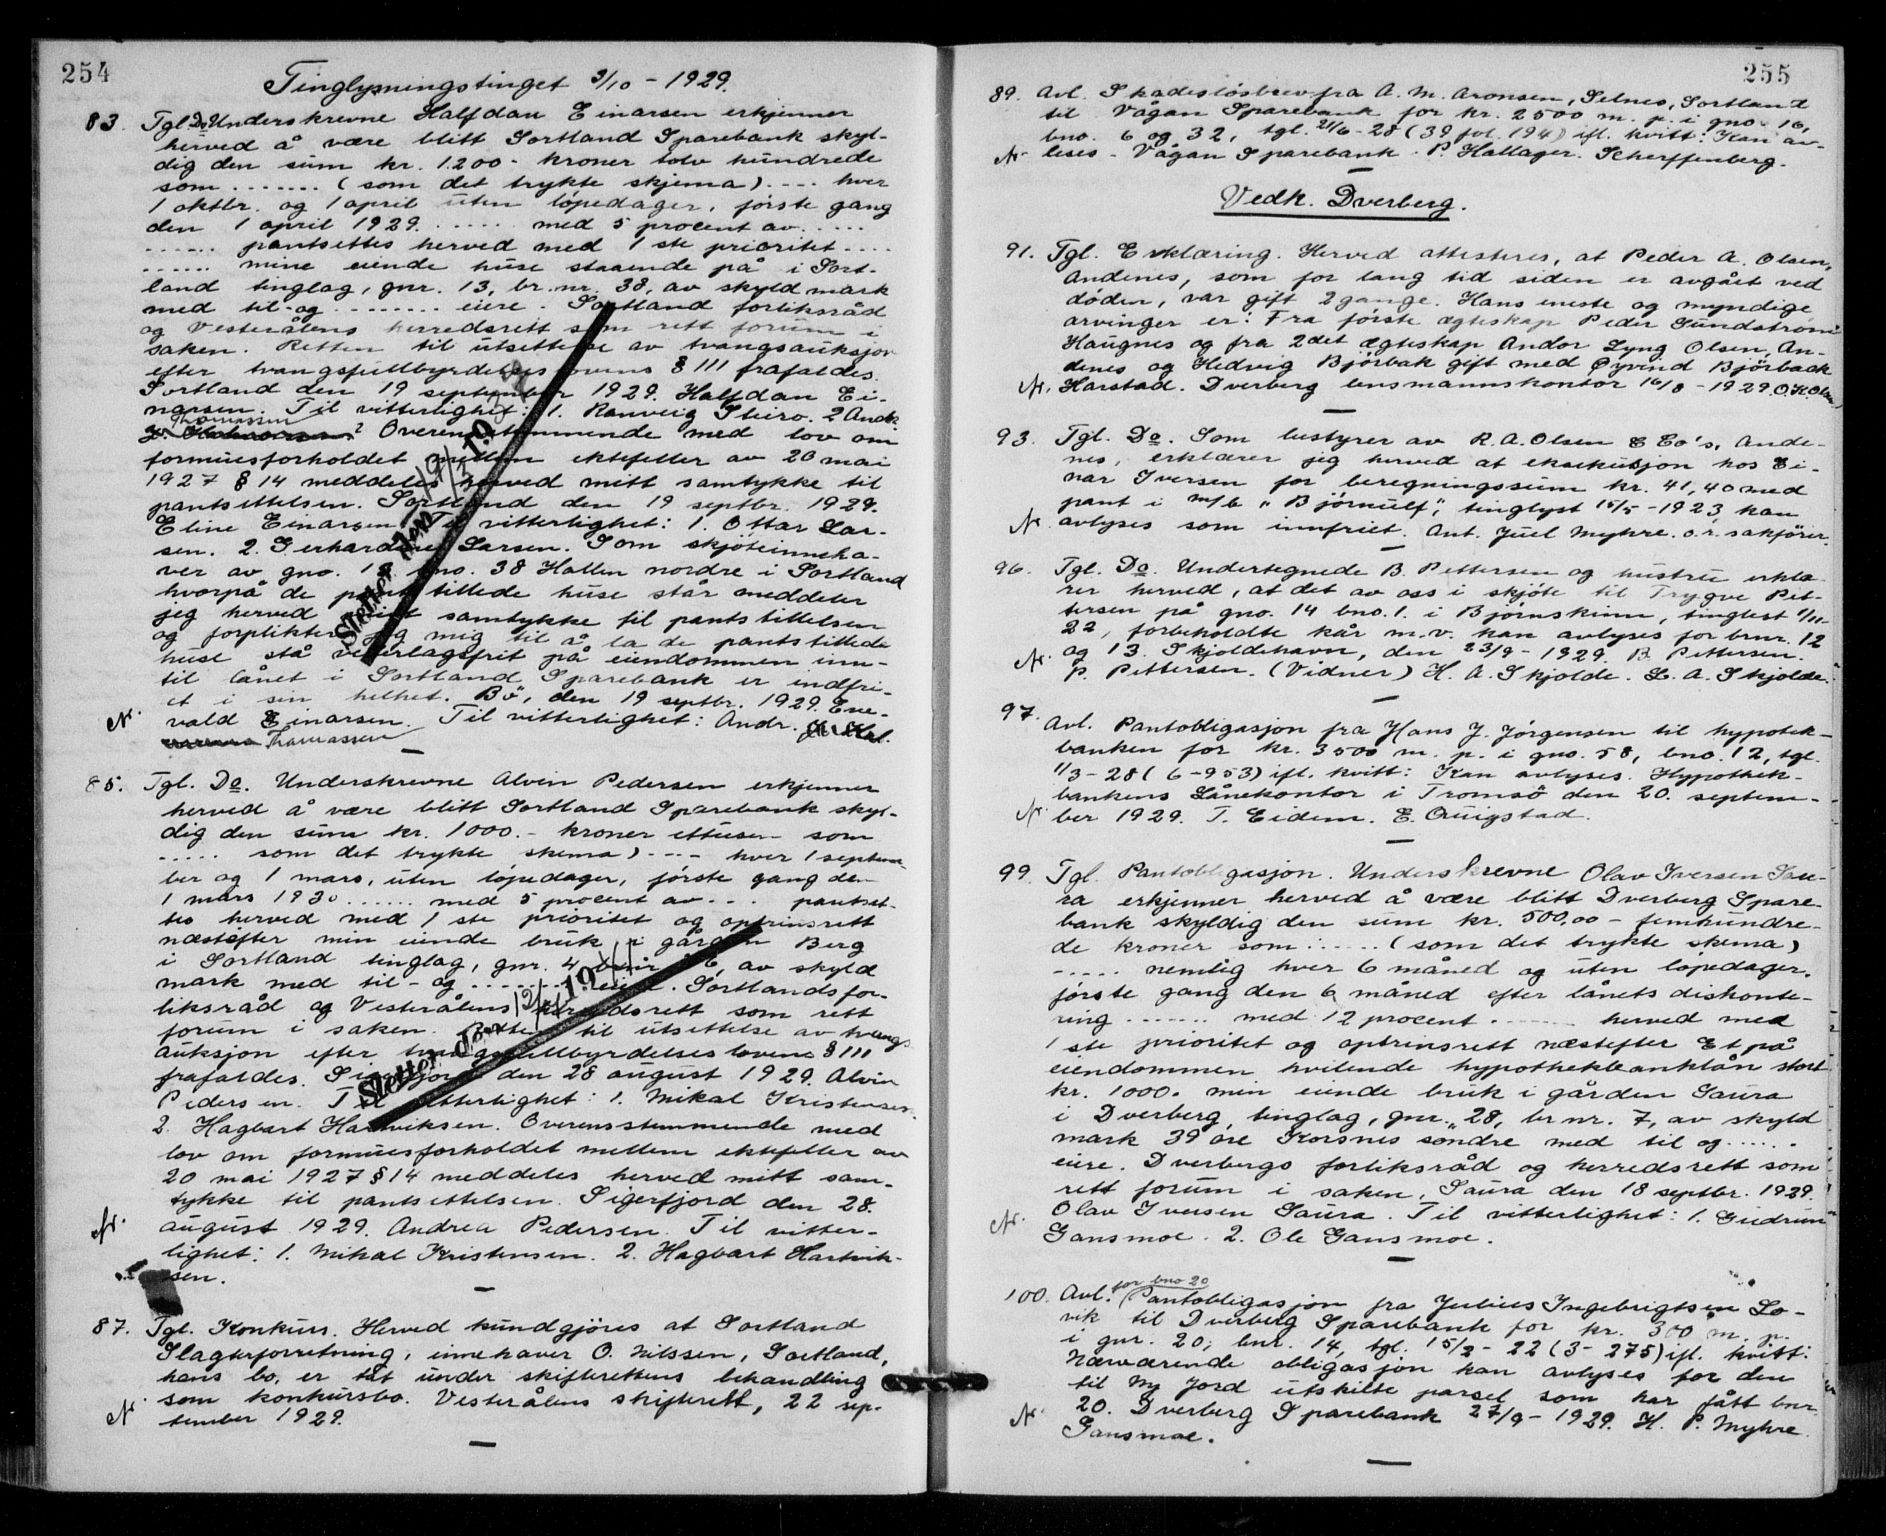 254
Tinglysningstinget 3/10 - 1929.
83. Tgl. Do. Underskrevne Halfdan Einarsen erkjenner
herved å være blitt Sortland Sparebank skyl-
dig den sum kr. 1.200 - kroner tolv hundrede
som ....... (som det trykte skjema) .... hver
1 oktbr. og 1 april uten løpedager, første gang
den 1 april 1929. ..... med 5 procent av .....
...... pantsettes herved med 1 ste prioritet ....
...... mine eiende huse staaende på i Sort-
land tinglag, gnr. 13, br. nr. 38, av skyld mark
med til-og ........ eiere. Sortland forliksråd
og Vesterålens herredsrett som rett forum i
saken. Retten til utsettelse av tvangsauksjon
efter tvangsfullbyrdelseslovens § 111 frafaldes.
Sortland den 19 september 1929. Halfdan Ei-
narsen. Til vitterlighet: 1. Ranveig Steiro. 2 Andr.
Thomassen
Overensstemmende med lov om
formuesforholdet mellem ektefeller av 20 mai
1927 § 14 meddeles herved mitt samtykke til
pantsettelsen. Sortland den 19 septbr. 1929.
Eline Einarsen. Til vitterlighet: 1. Ottar Lar-
sen. 2. Gerhardine Larsen. Som skjöteinneha-
ver av gno. 13 bno. 38 Hallen nordre i Sortland
hvorpå de pantstillede huse står meddeler
jeg herved mitt samtykke til pantstillelsen
og forplikter jeg mig til å la de pantstillede
huse stå vederlagsfrit på eiendommen inn-
til lånet i Sortland Sparebank er indfri-
et i sin helhet. Bö, den 19 septbr. 1929. Ene-
vald Einarsen. Til vitterlighet: Andr.
Thomassen
Slettet den
85. Tgl. Do. Underskrevne Alvin Pedersen erkjenner
herved å være blitt Sortland Sparebank skyl-
dig den sum kr. 1000.- kroner ettusen som
..... som det trykte skema) .... hver 1 septem-
ber og 1 mars, uten løpedager, første gang den
1 mars 1930 ...... med 5 procent av ... pantset-
tes herved med 1 ste prioritet og optrinsrett
næstefter min eiende bruk i gården Berg
i Sortland tinglag, gnr. 4 av skyld
mark med til-og ........ eiere. Sortlands for-
liksråd og Vesterålens herredsrett som rett
forum i saken. Retten til utsettelse av tvangs
auksjon efter tvangsfullbyrdelseslovens § 111
frafaldes. Sigerfjord den 28 august 1929. Alvin
Pedersen. Til vitterlighet: 1. Mikal Kristensen.
2. Hagbart Hartviksen. Overensstemmende med
lov om formuesforholdet mellem ektefeller av
20 mai 1927 § 14 meddeles herved mitt sam-
tykke til pantsettelsen. Sigerfjord den 28.
august 1929. Andrea Pedersen. Til vitter-
lighet: 1. Mikal Kristensen. 2. Hagbart Hartvik-
sen.
Slettet den
87. Tgl. Konkurs. Herved kundgjöres at Sortland
Slagterforretning, innehaver O. Nilssen, Sortland,
hans bo, er tat under skifterettens behandling
som konkursbo. Vesterålens skifterett, 22 sep-
tember 1929.
255
89. Avl. Skadeslösbrev fra A. M. Aronsen, Selnes, Sortland
til Vågan Sparebank for kr. 2500 m. p. i gno. 16,
bno. 6 og 32, tgl. 21/6-28 (39 fol. 194) ifl. kvitt: Kan av-
leses. Vågan Sparebank. P. Hallager. Scherffenberg.
Vedk. Dverberg.
91. Tgl. Erklæring. Herved attesteres, at Peder A. Olsen,
Andenes, som for lang tid siden er avgået ved
døden, var gift 2 gange. Hans eneste og myndige
arvinger er: Fra første ægteskap Peder Sundström
Haugnes og fra 2det ægteskap Andor Lyng Olsen, An-
denes og Hedvig Björbak gift med Øyvind Bjørback
Harstad. Dverberg lensmannskontor 16/8 - 1929. O. K. Olsen
93. Tgl. Do. Som bestyrer av R. A. Olsen & Co's, Ande-
nes, erklærer jeg herved at eksekusjon hos Ei-
nar Iversen for beregningssum kr. 41,40 med
pant i m/b "Björnulf", tinglyst 15/5 - 1923 kan
avlyses som innfriet. Ant. Juul Myhre. o.r. sakfører.
96. Tgl. Do. Undertegnede B. Pettersen og hustru erklæ-
rer herved, at det av oss i skjöte til Trygve Pet-
tersen på gno. 14 bno. 1. i Bjørnskinn, tinglest 1/11-
22, forbeholdte kår m.v. kan avlyses for brnr. 12
og 13. Skjoldehavn, den 23/9 - 1929. B. Pettersen.
P. Pettersen. (Vidner) H. A. Skjolde. L. A. Skjolde.
97. Avl. Pantobligasjon fra Hans J. Jørgensen til hypotek-
banken for kr. 3500 m. p. i gno. 58, bno. 12, tgl.
1/3-28 (6-953) ifl. kvitt: Kan avlyses. Hypothek-
bankens Lånekontor i Tromsö den 20. septem-
ber 1929. T. Eidem. E. Quigstad.
99. Tgl. Pantobligasjon. Underskrevne Olav Iversen Sau-
ra erkjenner herved å være blitt Dverberg Spare-
bank skyldig den sum kr. 500,00 - femhundre-
de kroner som ...... (som det trykte skema)
..... nemlig hver 6 måned og uten løpedager,
første gang den 6 måned efter lånets diskonte-
ring ....... med 12 procent ....... herved med
1 ste prioritet og optrinsrett næstefter Et på
eiendommen hvilende hypothekbanklån stort
kr. 1000. min eiende bruk i gården Saura
i Dverberg tinglag, gnr. 28, br nr. 7, av skyld
mark 39 øre Korsnes søndre med til og ......
eiere. Dverbergs forliksråd og herredsrett som
rett forum i saken. Saura den 18 septbr. 1929.
Olav Iversen Saura. Til vitterlighet: 1. Gudrun
Gansmoe. 2. Ole Gansmoe.
for bno 20
100. Avl. Pantobligasjon fra Julius Ingebrigtsen Lo-
vik til Dverberg Sparebank for kr. 300 m. p.
i gnr. 20, bnr. 14, tgl. 15/2 - 22 (3-275) ifl. kvitt:
Nærværende obligasjon kan avlyses for den
til Ny Jord utskilte parsel som har fått bnr.
20. Dverberg Sparebank 27/9 - 1929. H. P. Myhre
Gansmoe.